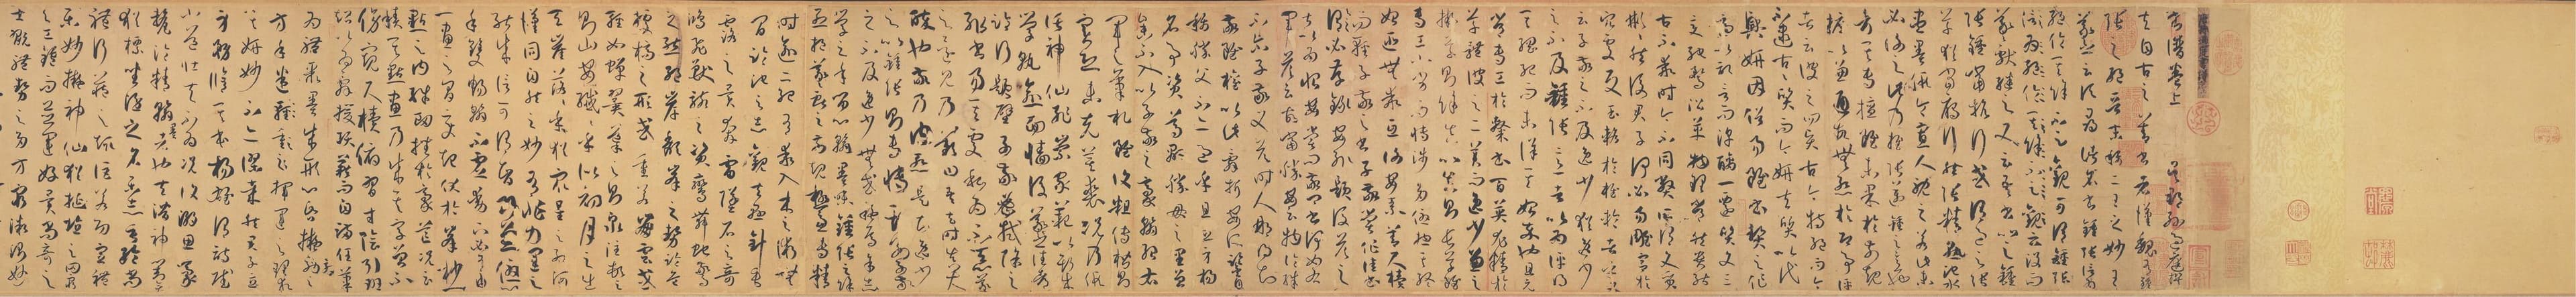 書譜卷上 吳郡孫過庭撰
夫自古之善書者漢魏有鍾
張之絕晉末稱二王之妙王
羲之云頃尋諸名書鍾張信為
絕倫其餘不足觀可謂鍾張
云沒而羲獻繼之又云吾書比之鍾
張鍾當抗行或謂過之張
草猶當鴈行然張精熟池水
盡墨假令寡人耽之若此未
必謝之此乃推張邁鍾之意也
考其專擅雖未果於前規
摭以兼通故無慙於即事評
者云彼之四賢古今特絕而今
不逮古古質而今妍夫質以代
興妍因俗易雖書契之作
適以記言而淳醨一遷質文三
變馳騖沿革物理常然貴能
古不乖時今不同弊所謂文質
彬彬然後君子何必易雕宮於
穴處反玉輅於椎輪者乎又
云子敬之不及逸少猶逸少
之不及鍾張意者以為評得
其綱紀而未詳其始卒也且元
常專工於隸書百英尤精於
草體彼之二美而逸少兼之
擬草則餘真比真則長草雖
專工小劣而博涉多優揔其終
始匪無乖互謝安素善尺牘
而輕子敬之書子敬嘗作佳書
與之謂必存錄安輒題後答之
甚以為恨安嘗問敬卿書何如
右軍答云故當勝安云物論殊
不尒子敬又答時人那得知
敬雖權以此辭折安所鑒自
稱勝父不亦過乎且立身揚
名事資尊顯勝母之里曾
參不入以子敬之豪翰紹右
軍之筆札雖復粗傳楷則
實恐未克箕裘況乃假
託神仙恥崇家範以斯成
學孰愈面牆後羲之往都
臨行題壁子敬密拭除之
輒書易其處私為不惡羲
之還見乃歎曰吾去時真大
醉也敬乃內慙是知逸少
之比鍾張則專博斯別子敬
之不及逸少無或疑焉余志
學之年留心翰墨味鍾張之餘
烈挹羲獻之前規極慮專精
時逾二紀有乖入木之術無
間臨池之志觀夫懸針垂
露之異奔雷墜石之奇
鴻飛獸駭之資鸞舞蛇驚
之態絕岸頹峯之勢臨危
據槁之形或重若崩雲或
輕如蟬翼導之則泉注頓之
則山安纖纖乎似初月之出
天崖落落乎猶眾星之列河
漢同自然之妙有非力運之
能成信可謂智巧兼優心
手雙暢翰不虛動下必有由
一畫之間變起伏於峯杪
一點之內殊衄挫於豪芒況云
積其點畫乃成其字曾不
傍窺尺牘俯習寸陰引班
超以為辭援項籍而自滿任筆
為體聚墨成形心昏擬効之
方手迷揮運之理求
其妍妙不亦謬哉然君子立
身務修其本楊雄謂詩賦
小道壯夫不為況復溺思豪
釐淪精翰墨者也夫潛神對奕
猶標坐隱之名樂志垂綸尚
體行藏之趣詎若功宣禮
樂妙擬神仙猶挻埴之罔
窮與工鑪而並運好異尚奇之
士翫體勢之多方窮微測妙